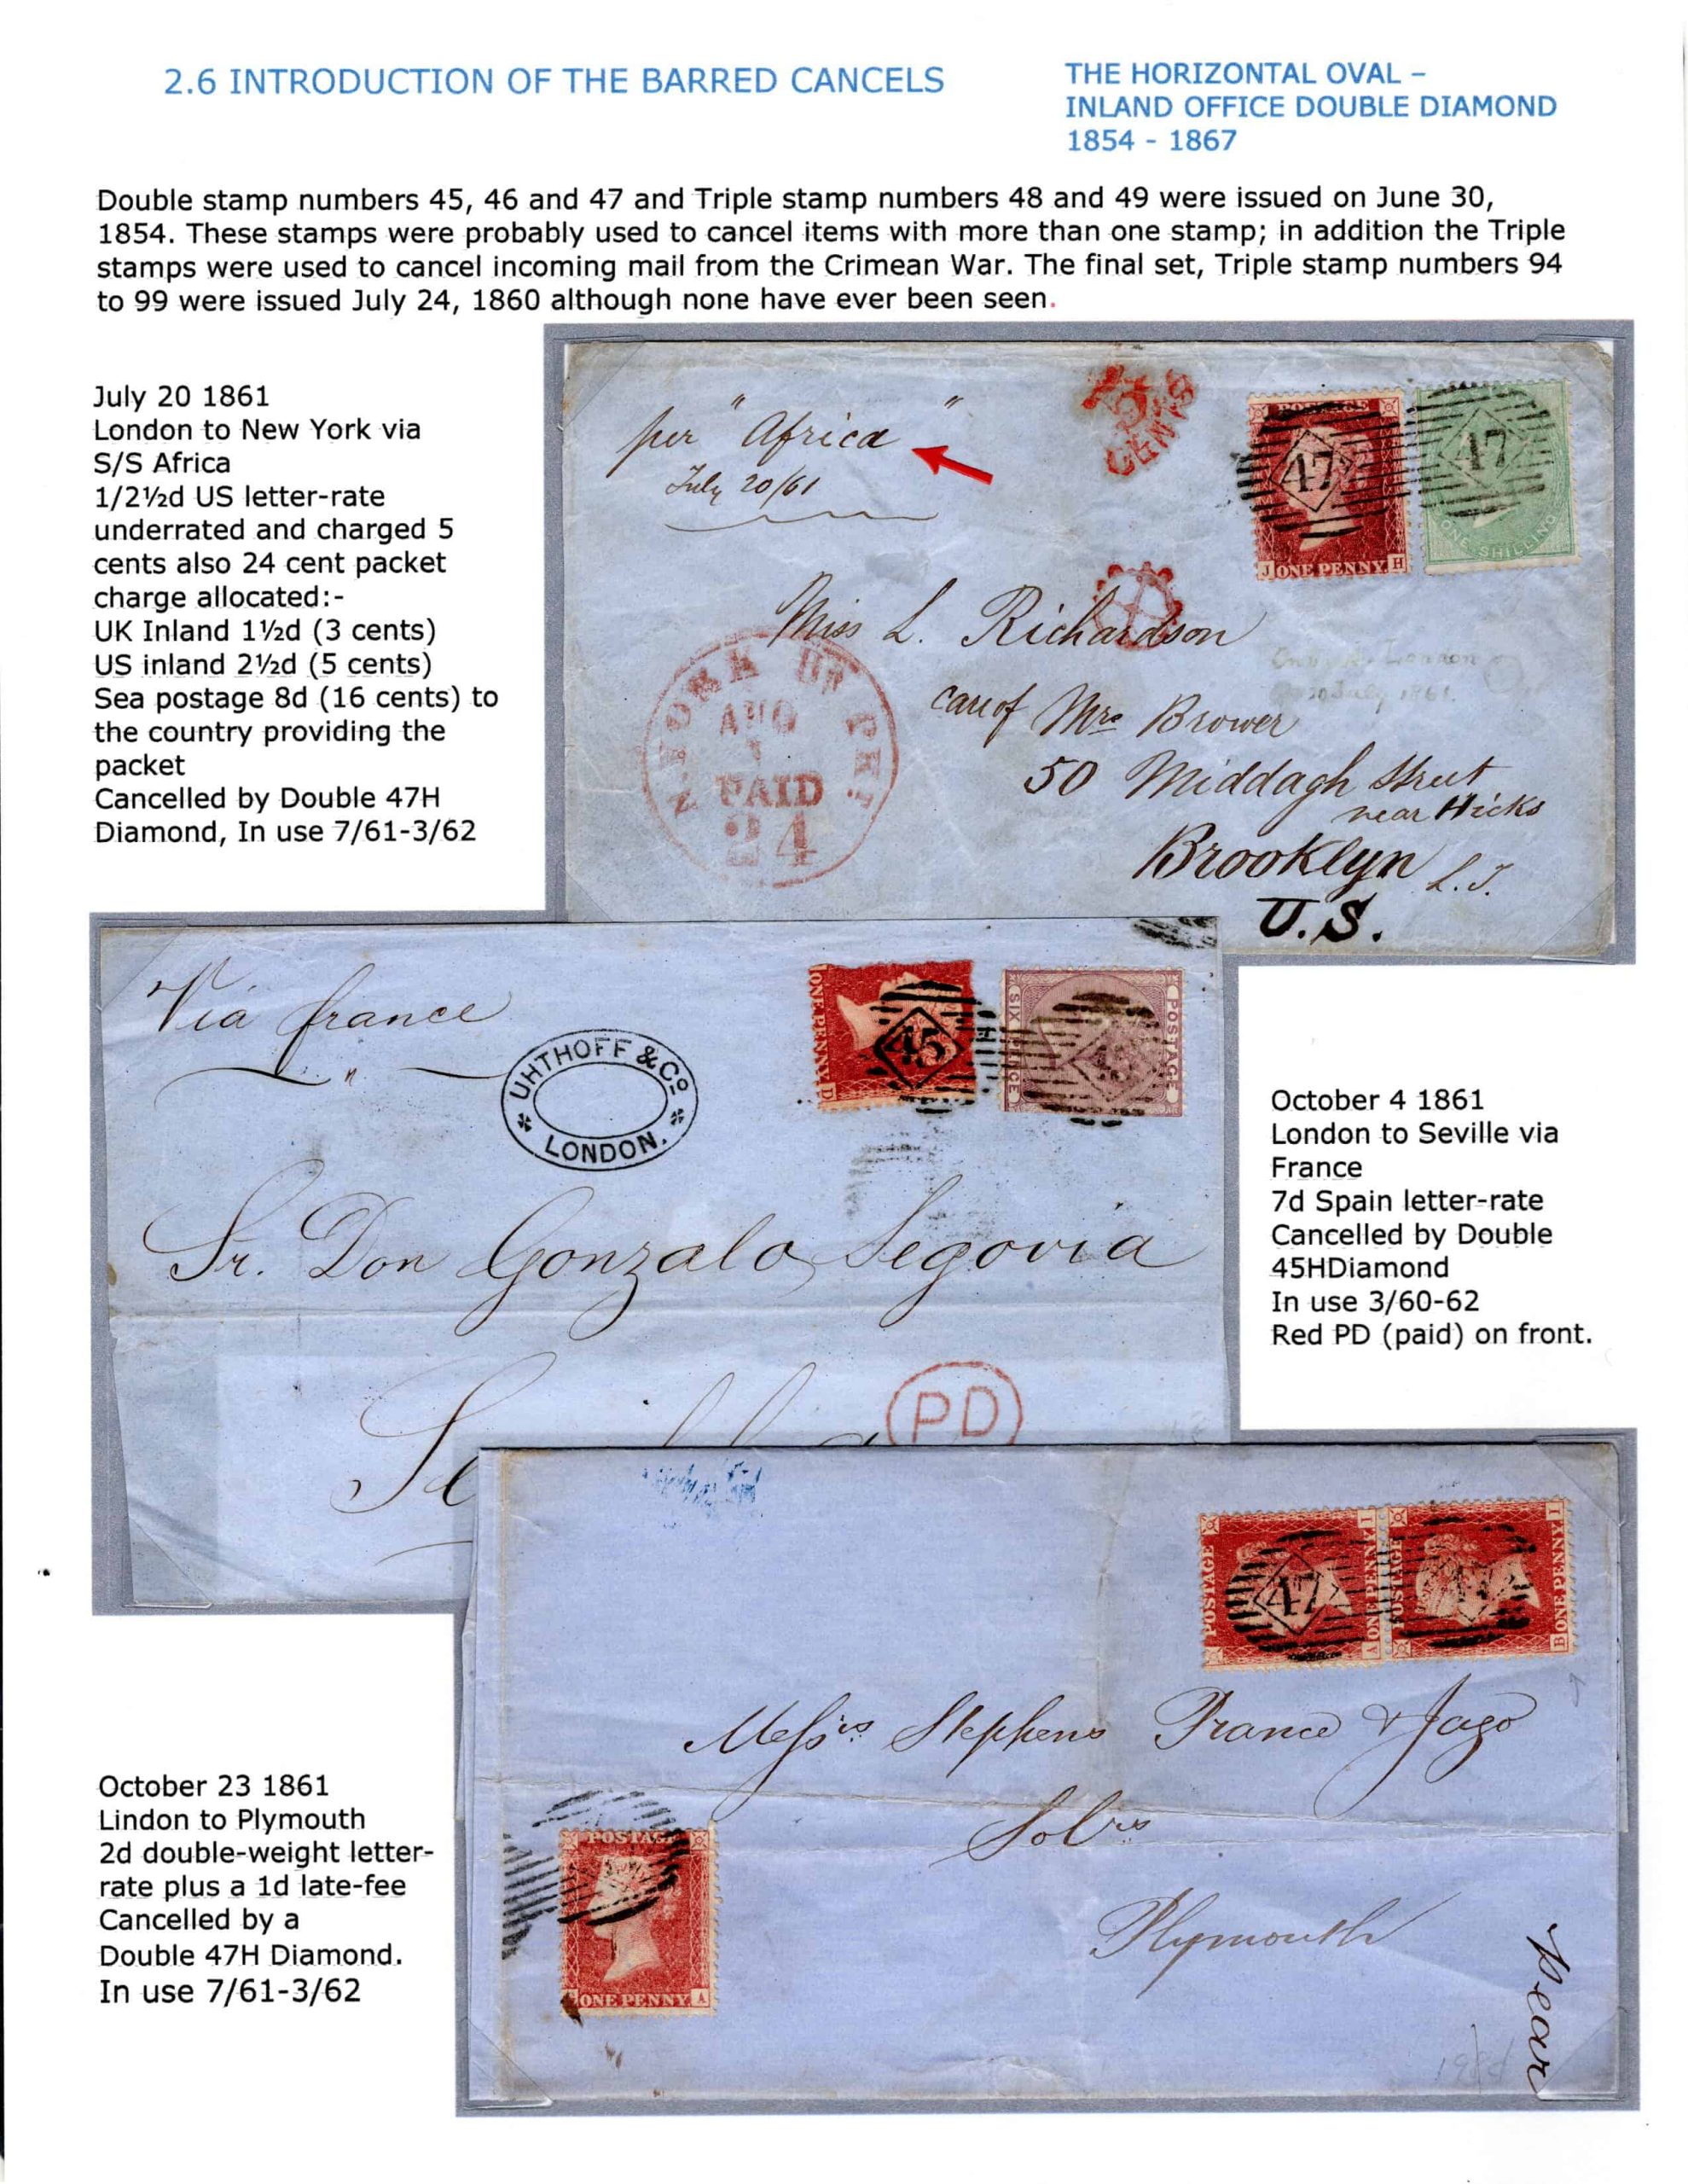 2.6 INTRODUCTION OF THE BARRED CANCELS
THE HORIZONTAL OVAL –
INLAND OFFICE DOUBLE DIAMOND
1854 - 1867
Double stamp numbers 45, 46 and 47 and Triple stamp numbers 48 and 49 were issued on June 30,
1854. These stamps were probably used to cancel items with more than one stamp; in addition the Triple
stamps were used to cancel incoming mail from the Crimean War. The final set, Triple stamp numbers 94
to 99 were issued July 24, 1860 although none have ever been seen.
July 20 1861
London to New York via
S/S Africa
1/2½d US letter-rate
underrated and charged 5
cents also 24 cent packet
charge allocated:-
UK Inland 1½d (3 cents)
US inland 2½d (5 cents)
Sea postage 8d (16 cents) to
the country providing the
packet
Cancelled by Double 47H
Diamond, In use 7/61-3/62
per "Africa"
July 20/61
CENTS
POSTAGE
47
J ONE PENNY H
47
ONE SHILLING
Miss L. Richardson
care of Mrs Brower
50 Middagh Street
near Hicks
Brooklyn L.I.
U.S.
N. YORK BR PKT
AUG
PAID
24
London
July 1861.
Via france
UHTHOFF & Co
LONDON.
ONE PENNY D
45
SIX PENCE
POSTAGE
Sr. Don Gonzalo Segovia
Se
PD
October 4 1861
London to Seville via
France
7d Spain letter-rate
Cancelled by Double
45HDiamond
In use 3/60-62
Red PD (paid) on front.
POSTAGE
47
A ONE PENNY I
POSTAGE
47
B ONE PENNY I
Messrs Stephens Prance & Jago
Solrs
Plymouth
POSTAGE
ONE PENNY A
October 23 1861
Lindon to Plymouth
2d double-weight letter-
rate plus a 1d late-fee
Cancelled by a
Double 47H Diamond.
In use 7/61-3/62